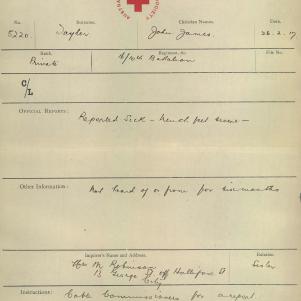 SOCIETY
AUSTRA
No. Surname. Christian Names. Date.
5220. Tayler John James. 26.2.17
Rank. Regiment, &c. File No.
Private 16/10th Battalion
C/L
OFFICIAL REPORTS: Reported Sick - Trench feet severe -
Other Information: Not heard of or from for six months
Inquirer's Name and Address. Relation.
Mrs M Robinson Sister
13 George St off Hallifax St
City
Instructions: Cable Commissioners for a report